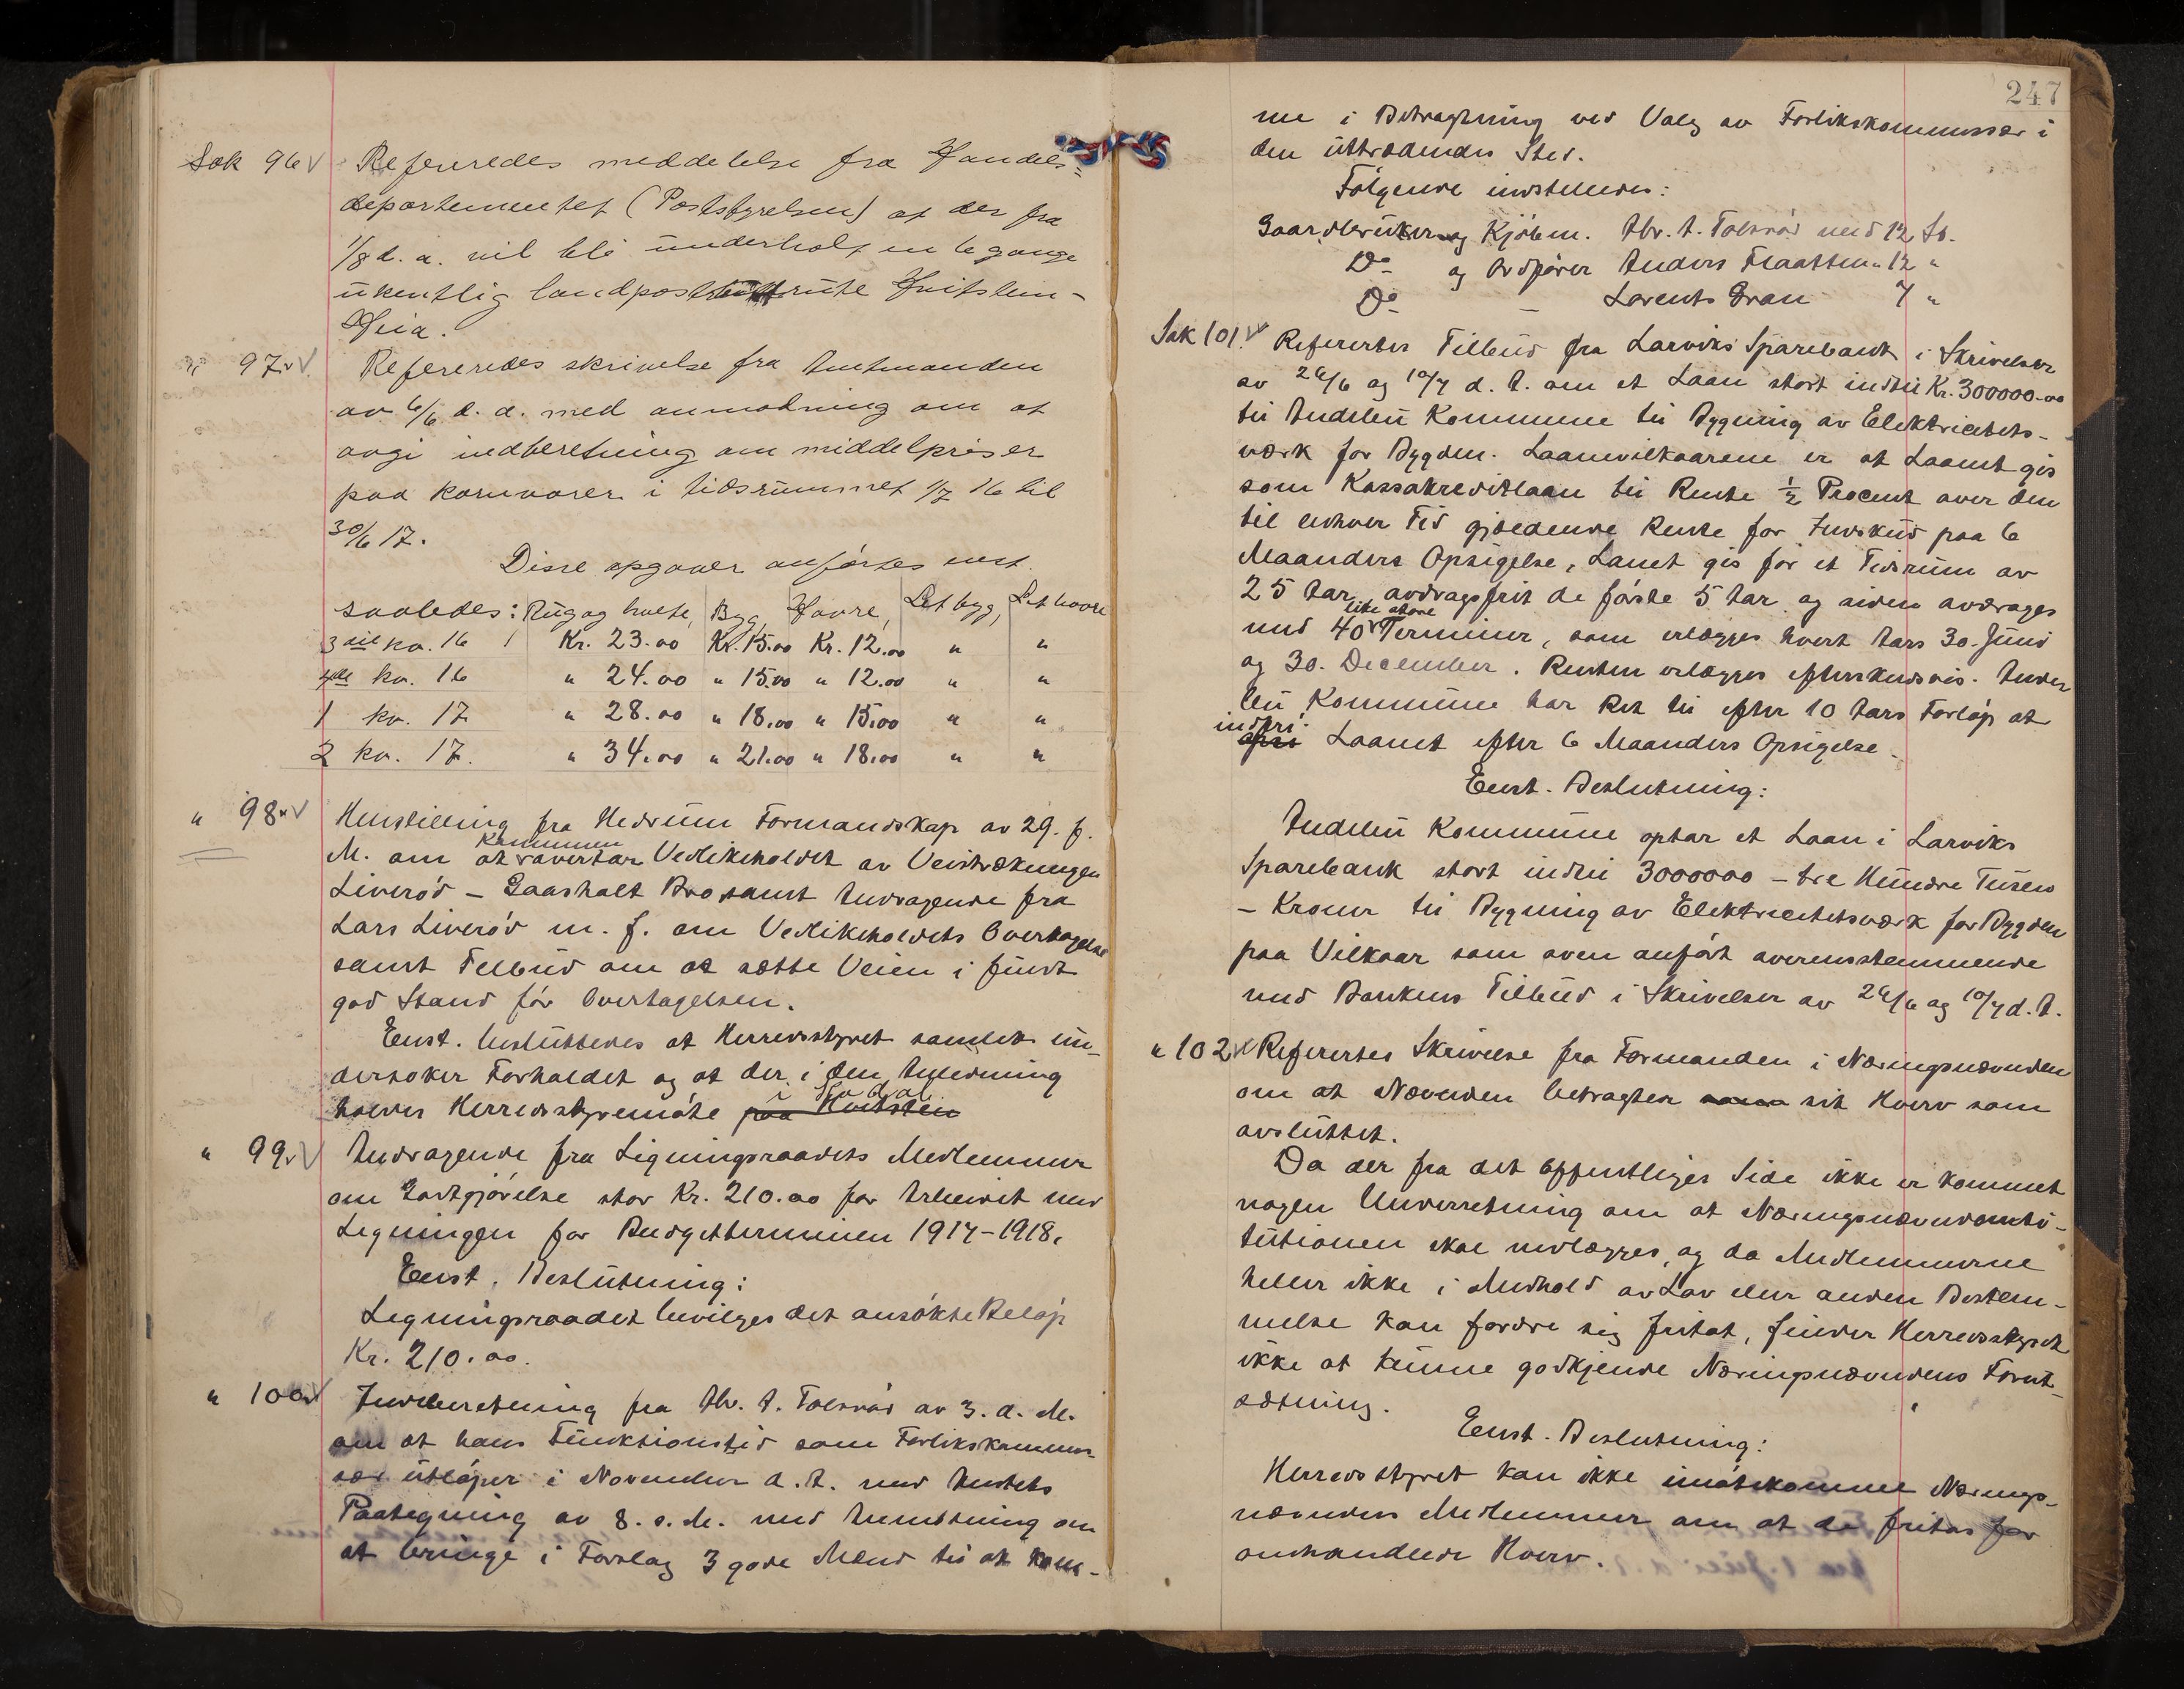 Sak 96 Refereredes meddelelse fra Handels=
departementet (Poststyrelsen) at der fra
1/8 d. a. vil bli underholt en 6 gange
ukentlig landpostrute Hvitstein -
Heia.
" 97. Refereredes skrivelse fra Amtmanden
av 6/6 d. a. med anmodning om at
avgi indberetning om middelpriser
paa kornvarer i tidsrummet 1/7 16 til
30/6 17.
Disse opgaver anførtes enst.
saaledes: Rug og hvete, Byg, Havre, Let byg, Let havre
3die kv. 16 Kr. 23.00 Kr. 15.00 Kr. 12.00 " "
4de kv. 16 " 24.00 " 15.00 " 12.00 " "
1 kv. 17 " 28.00 " 18.00 " 15.00 " "
2 kv. 17. " 34.00 " 21.00 " 18.00 " "
" 98. Henstilling fra Hedrum Formandskap av 29. f.
Kommunen
M. om at overtar Vedlikeholdet av Veistrækningen
Liverød - Gaasholt Bro samt Andragende fra
Lars Liverød m. f. om Vedlikeholdets Overtagelse
samt Tilbud om at sætte Veien i fuldt
god Stand før Overtagelsen.
Enst. besluttedes at Herredsstyret samlet un-
dersøker Forholdet og at der i den Anledning
holdes Herredsstyremøte paa Hvitstein
" 99. Andragende fra Ligningsraadets Medlemmer
om Godtgjørelse stor Kr. 210.00 for Arbeidet med
Ligningen for Budgetterminen 1917-1918.
Enst. Beslutning:
Ligningsraadet bevilges det ansøkte Beløp
Kr. 210.00.
" 100. Indberetning fra Abr. A. Tolsrød av 3. d. M.
om at hans Funktionstid som Forlikskommis-
sær utløper i November d. A. med Amtets
Paategning av 8. s. M. med Anmodning om
at bringe i Forslag 3 gode Mænd til at kom-
247
me i Betragtning ved Valg av Forlikskommissær i
den uttrædendes Sted.
Følgende indstilledes:
Gaardbruker og Kjøbm. Abr. A. Tolsrød med 12 St.
Do og Ordfører Anders Flaatten " 12 "
Do - Lorents Gran 7 "
Sak 101. Refererter Tilbud fra Larviks Sparebank i Skrivelser
av 26/6 og 10/7 d. A. om et Laan stort indtil Kr. 300000.00
til Andebu Kommune til Bygning av Elektricitets-
værk for Bygden. Laanevilkaarene er at Laanet gis
som Kassakreditlaan til Rente 1/2 Procent over den
til enhver Tid gjældende Rente for Indskud paa 6
Maanders Opsigelse, Lanet gis for et Tidsrum av
25 Aar, avdragsfrit de første 5 Aar og siden avdrages
like store
med 40 Terminer, som erlægges hvert Aars 30. Juni
og 30. December. Renten erlægges efterskudsvis. Ande-
bu Kommune har Ret til efter 10 Aars Forløp at
indfri
opsi Laanet efter 6 Maanders Opsigelse.
Enst. Beslutning:
Andebu Kommune optar et Laan i Larviks
Sparebank stort indtil 3000000 - tre Hundre Tusen
- Kroner til Bygning av Elektricitetsværk for Bygden
paa Vilkaar som oven anført overensstemmende
med Bankens Tilbud i Skrivelser av 26/6 og 10/7 d. A.
" 102 Refererter Skrivelse fra Formanden i Næringsnævnden
om at Nævnden betragter sit Hverv som
avsluttet.
Da der fra det offentliges Side ikke er kommet
nogen Underretning om at Næringsnævndsinsti-
tutionen skal nedlægges, og da Medlemmerne
heller ikke i Medhold av Lov eller anden Bestem-
melse kan fordre sig fritat, finder Herredsstyret
ikke at kunne godkjende Næringsnævndens Forut-
sætning.
Enst. Beslutning:
Herredsstyret kan ikke imøtekomme Nærings-
nævndens Medlemmer om at de fritas for
omhandlede Hverv.